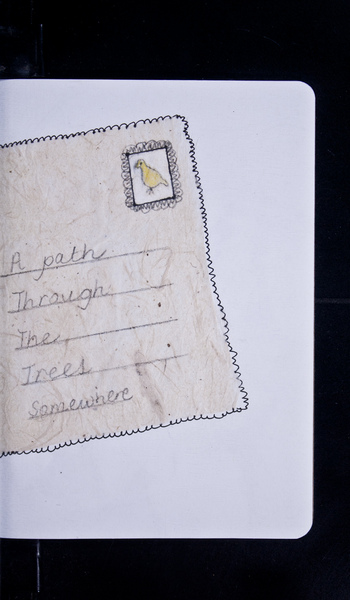 A path
Through
The
Trees
Somewhere